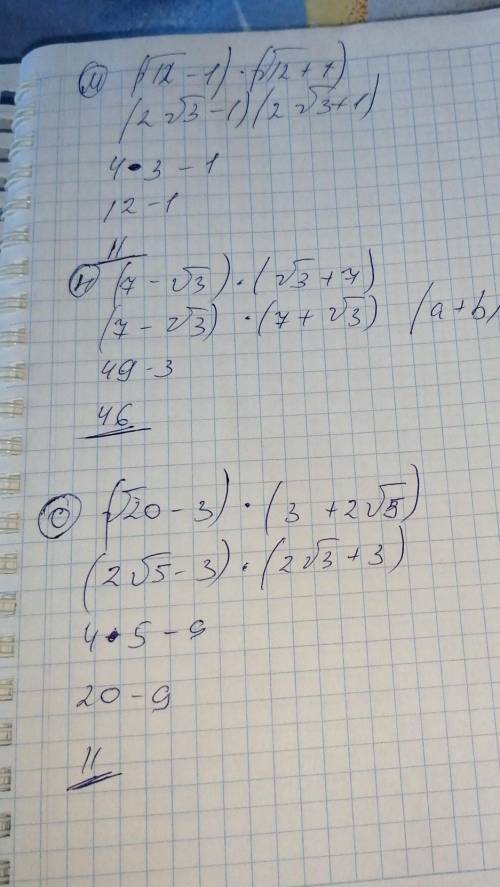 М) (√12 - 1) · (√12 + 1)
(2√3 - 1)(2√3 + 1)
4 · 3 - 1
12 - 1
11
Н) (7 - √3) · (√3 + 7)
(7 - √3) · (7 + √3) (a + b)
49 - 3
46
О) (√20 - 3) · (3 + 2√5)
(2√5 - 3) · (2√3 + 3)
4 · 5 - 9
20 - 9
11